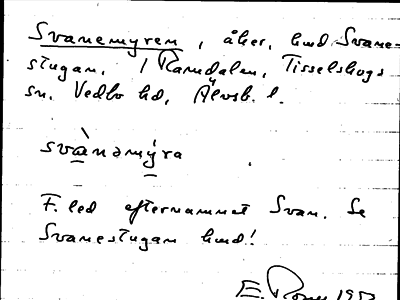 Svanemyren, åker, hmd Svane=
stugan. / Ramdalen, Tisselskogs
sn. Vedbo hd, Älvsb. l.
svànamýra
F. led efternamnet Svan. Se
Svanestugan hmd!
E. 195